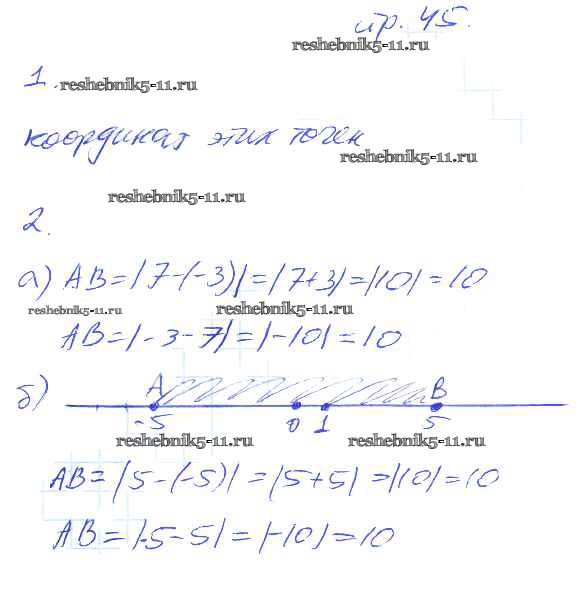 стр. 45.
reshebnik5-11.ru
1. reshebnik5-11.ru
координат этих точек
reshebnik5-11.ru
reshebnik5-11.ru
2.
а) AB=|7-(-3)|=|7+3|=|10|=10
reshebnik5-11.ru reshebnik5-11.ru
AB=|-3-7|=|-10|=10
б) A B
-5 0 1 5
reshebnik5-11.ru reshebnik5-11.ru
AB=|5-(-5)|=|5+5|=|10|=10
AB=|-5-5|=|-10|=10